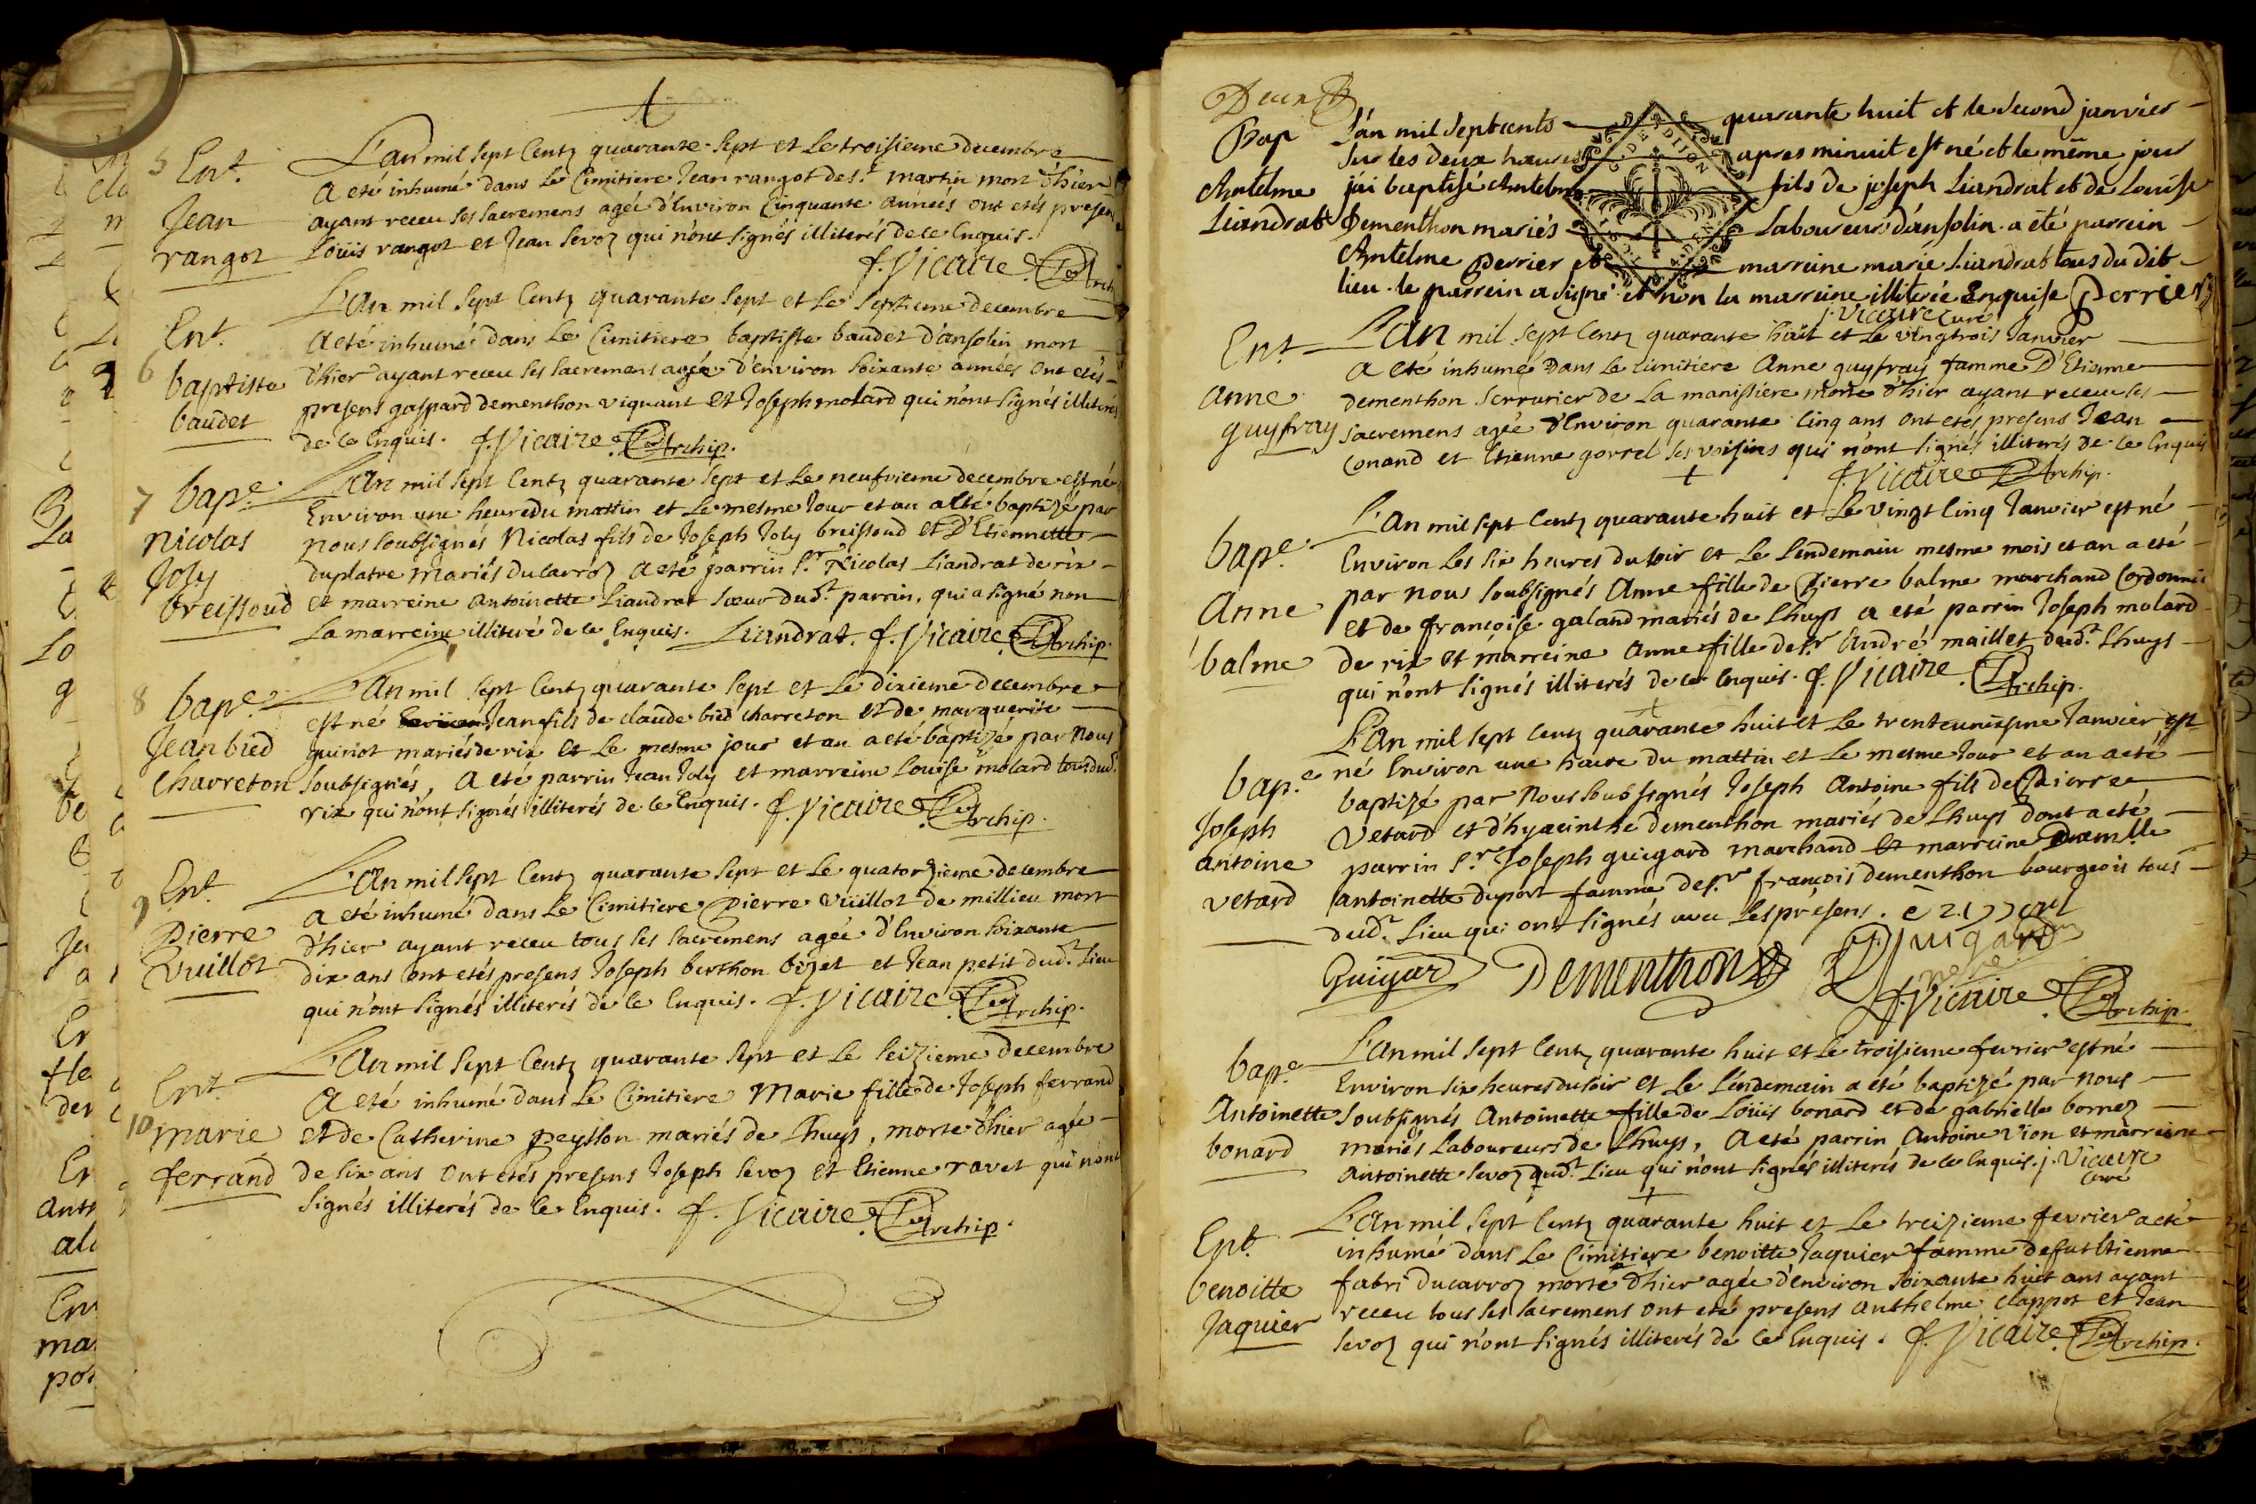 5 Ent. L'an mil sept centz quarante-sept et le troisieme decembre
Jean a eté inhumé dans le cimitiere Jean rangot de st. martin mort d'hier
rangot ayant receu ses sacremens agée d'Environ cinquante années ont etés presen
Loüis rangot et Jean sevoz qui n'ont signés illiterés de ce Enquis.
f. Vicaire Archip
6 Ent. L'An mil sept centz quarante sept et le septieme decembre
baptiste a eté inhumé dans le cimitiere baptiste baudet d'ansolin mort
baudet d'hier ayant receu ses sacremens agée d'environ soixante années ont etés
presens gaspard dementhon viquant et Joseph molard qui n'ont signés illiterés
de ce Enquis. f. Vicaire Archip.
7 bap.e L'An mil sept centz quarante sept et le neufvieme decembre est né
nicolas Environ une heure du mattin et le mesme Jour et an a eté baptizé par
Joly nous soubsignés Nicolas fils de Joseph Joly breissoud et D'Etiennette
breissoud duplatre mariés du carroz a eté parrin Sr. Nicolas Liandrat de rix
et marreine antoinette Liandrat soeur dud.t parrin, qui a signé non
La marreine illiteré de ce Enquis. Liandrat. f. Vicaire Archip.
8 bap.e L'An mil sept centz quarante sept et le dixieme decembre
Jean bied est né Jean fils de claude bied charreton et de marguerite
charreton guiriot mariés de rix et le mesme jour et an a eté baptizé par nous
soubsignés, a eté parrin Jean Joly et marreine Louise molard tous dud.
rix qui n'ont signés illiterés de ce Enquis. f. Vicaire Archip.
9 Ent. L'An mil sept centz quarante sept et le quatorzieme decembre
Pierre a eté inhumé dans le cimitiere Pierre Vuillot de millieu mort
Vuillot d'hier ayant receu tous ses sacremens agée d'Environ soixante
dix ans ont etés presens Joseph berthon bozet et Jean petit dud.t Lieu
qui n'ont signés illiterés de ce Enquis. f. Vicaire Archip.
10 Ent. L'An mil sept centz quarante sept et le seizieme decembre
marie a eté inhumé dans le cimitiere Marie fille de Joseph ferrand
ferrand et de Catherine peysson mariés de Lhuys, morte d'hier agée
de six ans ont etés presens Joseph sevoz et Etienne ravet qui n'ont
signés illiterés de ce Enquis. f. Vicaire Archip.
Deux
Bap L'an mil septcents quarante huit et le second janvier
sur les deux heures apres minuit est né et le même jour
Antelme j'ai baptisé Antelme fils de joseph Liandrat et de Louise
Liandrat Dementhon mariés Laboureurs d'ansolin. a été parrein
Antelme perrier et marreine marie Liandrat tous du dit
lieu. le parrein a signé et non la marreine illiterée Enquise Perrier
j. Vicaire curé
G. DE DIJON
Ent. L'An mil sept centz quarante huit et le vingtrois Janvier
anne a eté inhumé dans le cimitiere Anne guyfray famme D'Etienne
guyfray dementhon serrurier de La manissiere morte d'hier ayant receu ses
sacremens agée d'Environ quarante cinq ans ont etés presens Jean
Conand et Etienne gorrel ses voisins qui n'ont signés illiterés de ce Enquis
f. Vicaire Archip.
bap.e L'An mil sept centz quarante huit et le vingt cinq Janvier est né
Anne Environ les six heures du soir et le lendemain mesme mois et an a eté
balme par nous soubsignés Anne fille de Pierre balme marchand Cordonnie
et de francoise galand mariés de Lhuys a eté parrin Joseph molard
de rix et marreine Anne fille de Sr. André maillet dud.t Lhuys
qui n'ont signés illiterés de ce Enquis. f. Vicaire Archip.
bap.e L'An mil sept centz quarante huit et le trenteunieme Janvier est
Joseph né Environ une heure du mattin et le mesme Jour et an a eté
antoine baptizé par nous soubsignés Joseph Antoine fils de Pierre
vetard Vetard et d'hyacinthe dementhon mariés de Lhuys dont a eté
parrin Sr. Joseph guigard marchand et marreine Dam.lle
antoinette duport famme de Sr. françois dementhon bourgeois tous
dud.t Lieu qui ont signés avec les présens.
Guigar Dementhon Guigard
f. Vicaire Archip.
bap.e L'An mil sept centz quarante huit et le troisieme fevrier est né
Environ six heures du soir et le lendemain a eté baptizé par nous
Antoinette soubsignés Antoinette fille de Loüis bonard et de gabrielle bornoz
bonard mariés Laboureurs de Lhuys, a eté parrin Antoine Vion et marreine
Antoinette sevoz dud.t Lieu qui n'ont signés illiterés de ce Enquis. j. Vicaire
curé
Ent. L'An mil sept centz quarante huit et le treizieme fevrier a eté
inhumé dans le cimitiere benoitte Jaquier famme de fut Etienne
benoitte fabri du carroz morte d'hier agée d'environ soixante huit ans ayant
Jaquier receu tous ses sacremens ont eté presens anthelme clappot et Jean
sevoz qui n'ont signés illiterés de ce Enquis. f. Vicaire Archip.